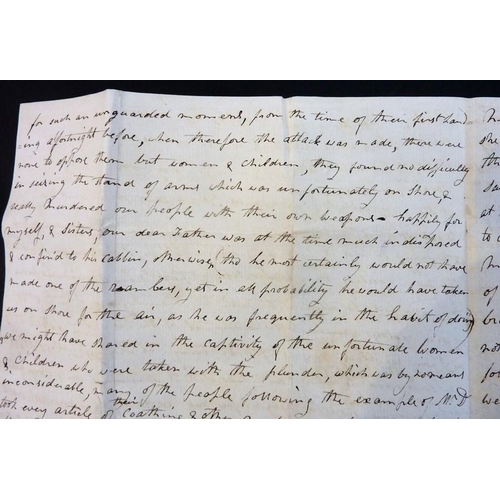 for such an unguarded moment, from the time of their first land
ing a fortnight before, when therefore the attack was made, there were
none to oppose them but women & children, they found no difficulty
in seizing the stand of arms which was unfortunately on shore, &
really murdered our people with their own weapons - happily for
myself, & Sisters, our dear Father was at the time much indisposed
& confin'd to his cabbin, otherwise (tho he most certainly would not have
made one of the ramblers, yet in all probability he would have taken
us on shore for the air, as he was frequently in the habit of doing)
we might have shared in the captivity of the unfortunate women
& children who were taken with the plunder, which was by no means
inconsiderable, many of the people following the example of Mr D
took every article of their Cloathing & other